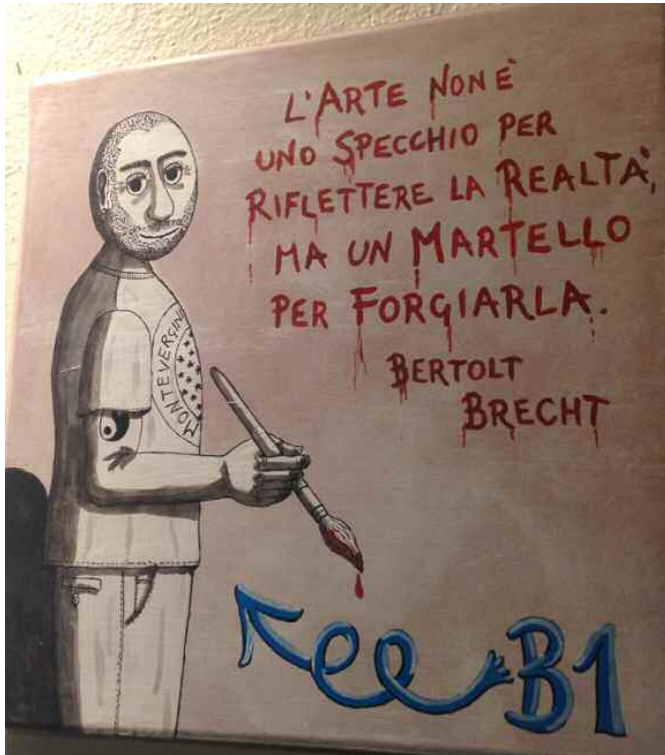 L'ARTE NON È
UNO SPECCHIO PER
RIFLETTERE LA REALTÀ,
MA UN MARTELLO
PER FORGIARLA.
BERTOLT
BRECHT
MONTEVERGINI
B1